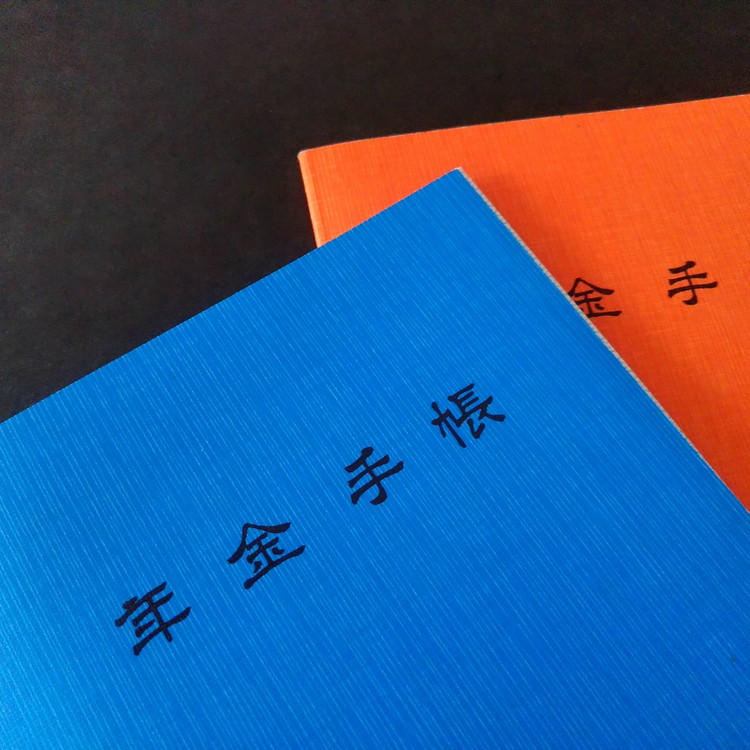 年金手帳
金手